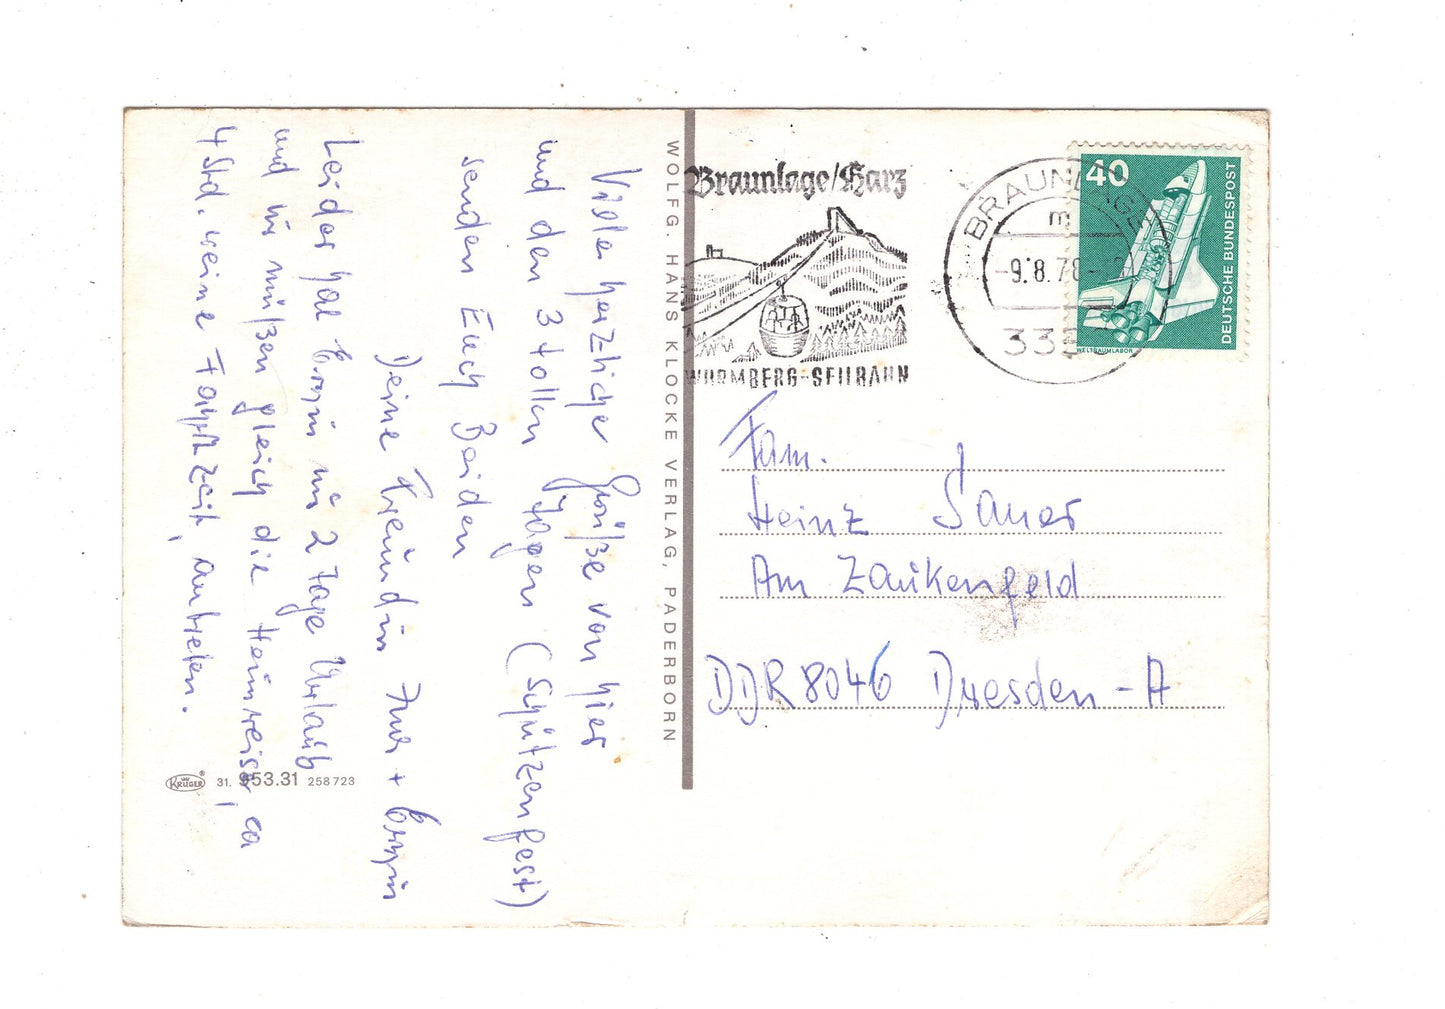 Viele herzliche Grüße von hier
und den 3 tollen Tagen (Schützenfest)
senden Euch Beiden
Deine Freundin +
Leider hat nur 2 Tage Urlaub
und wir müßen gleich die Heimreise, ca
4 Std. reine Fahrtzeit, antreten.
WOLFG. HANS KLOCKE VERLAG, PADERBORN
KRÜGER ® 31. 953.31 258 723
Braunlage/Harz
WURMBERG-SEILBAHN
BRAUNLAGE
m
-9.8.78-
40
DEUTSCHE BUNDESPOST
WELTRAUMLABOR
Fam.
Heinz Sauer
Am Zaukenfeld
DDR 8046 Dresden-A